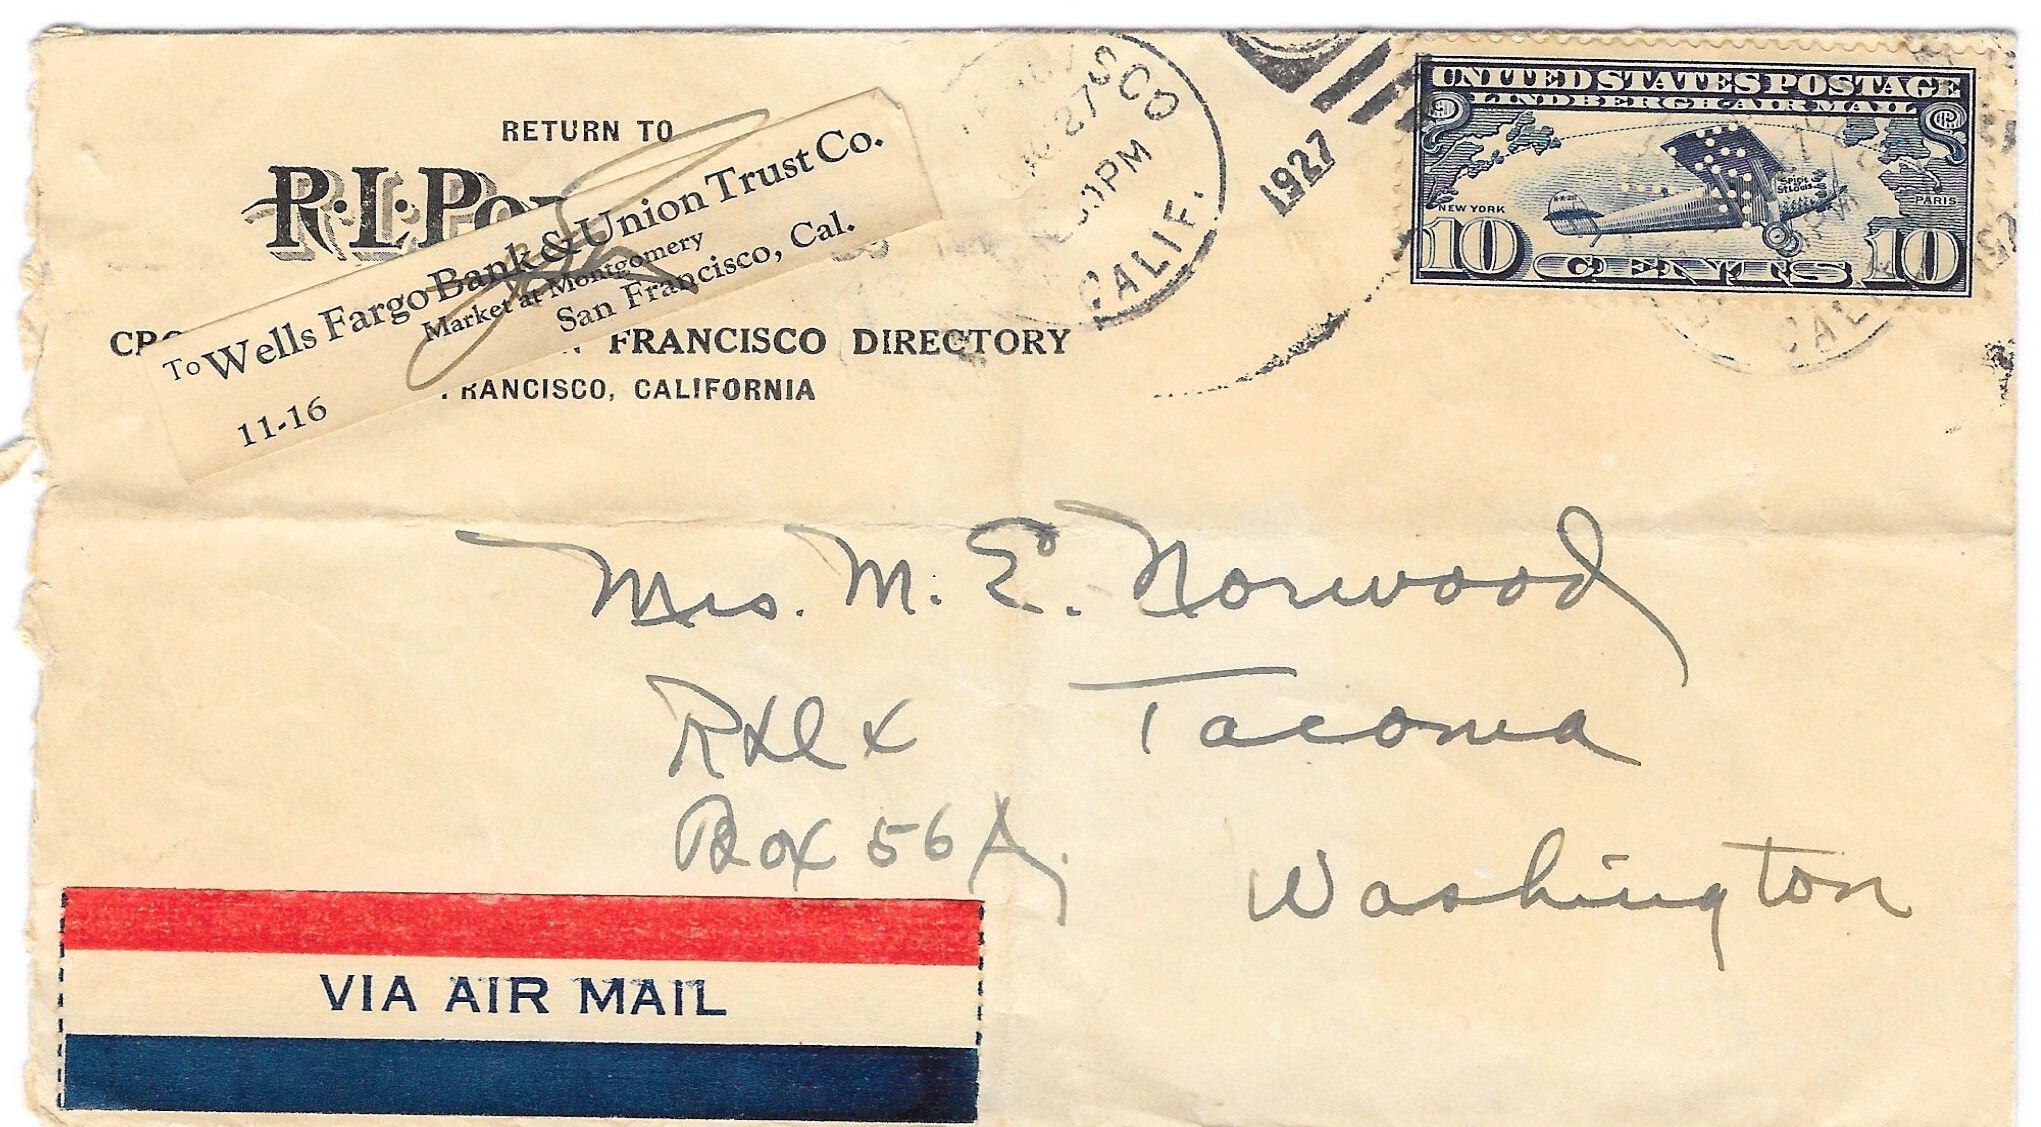 RETURN TO
R.L.Po
To Wells Fargo Bank & Union Trust Co.
Market at Montgomery
San Francisco, Cal.
11-16
FRANCISCO DIRECTORY
FRANCISCO, CALIFORNIA
27
PM
CALIF.
1927
UNITED STATES POSTAGE
LINDBERGH AIR MAIL
Spirit
St. Louis
NEW YORK
PARIS
10 CENTS 10
CALIF
Mrs. M. E. Norwood
Tacoma
Box 56A.
Washington
VIA AIR MAIL